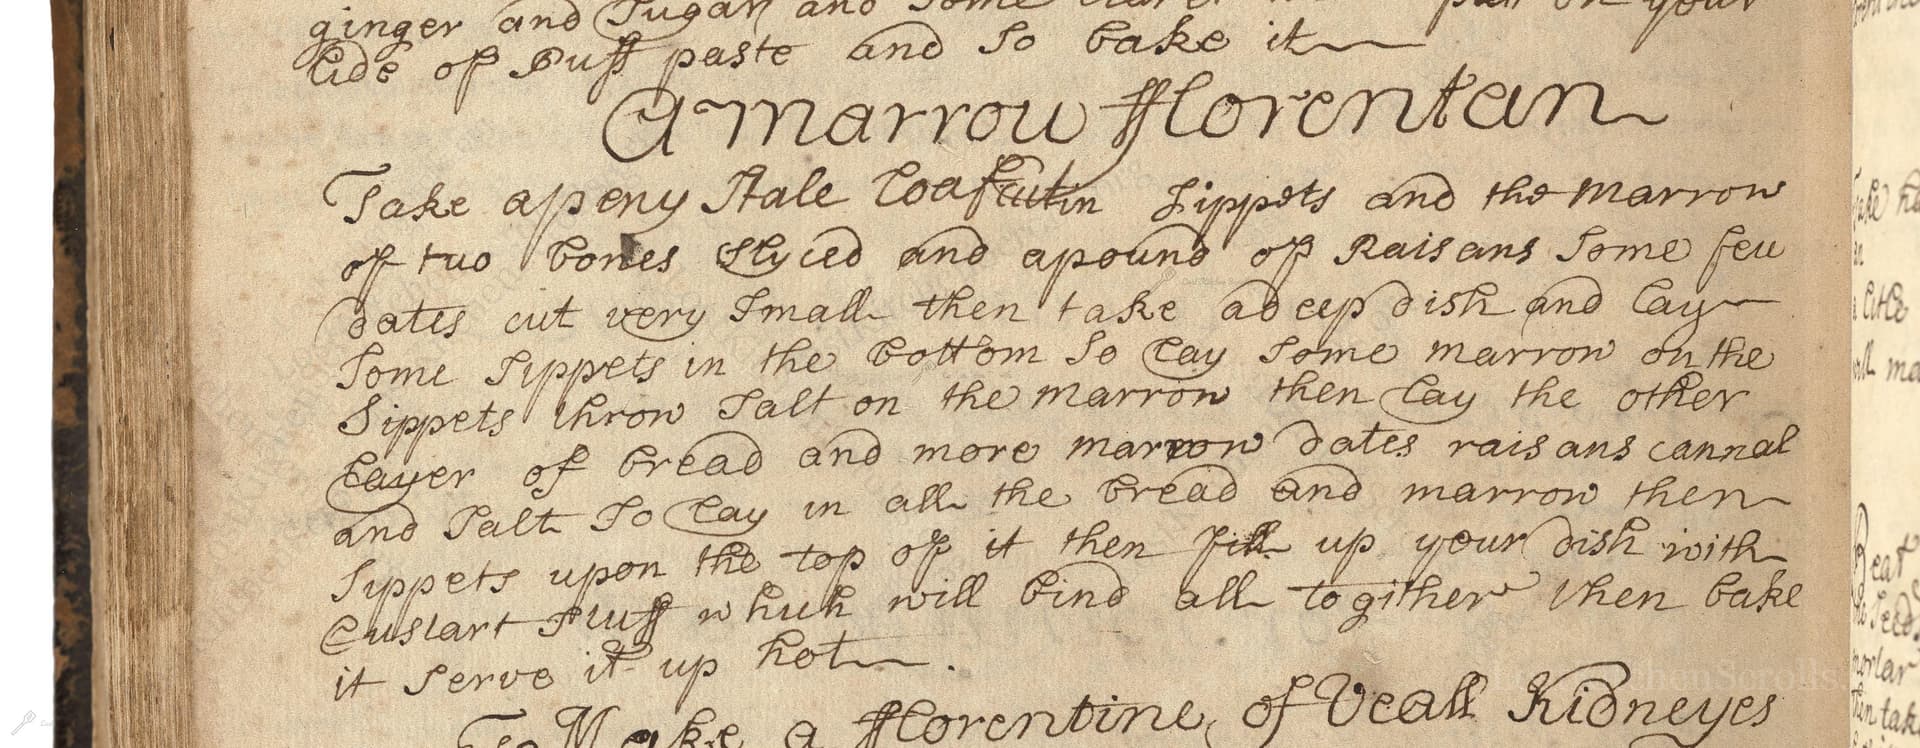 ginger and Sugar and some
lide of Puff paste and So bake it
A Marrow fflorentan
Take a peny Stale Loaf cut in Sippets and the Marrow
of two bones Slyced and a pound of Raisans Some few
dates cut very Small then take a deep dish and Lay
Some Sippets in the bottom So Lay Some Marrow on the
Sippets throw Salt on the Marrow then Lay the other
Layer of bread and more Marrow dates raisans cannal
and Salt So Lay in all the bread and marrow then
Sippets upon the top of it then fill up your dish with
Custart Stuff which will bind all togither then bake
it Serve it up hot .
To Make a fflorentine of Veall Kidneyes